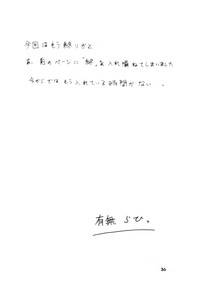 今回はもう終りがと
あ、前のページに「終」を入れ損ねてしまいました
今からではもう入れている時間がない。
有無らひ。
36